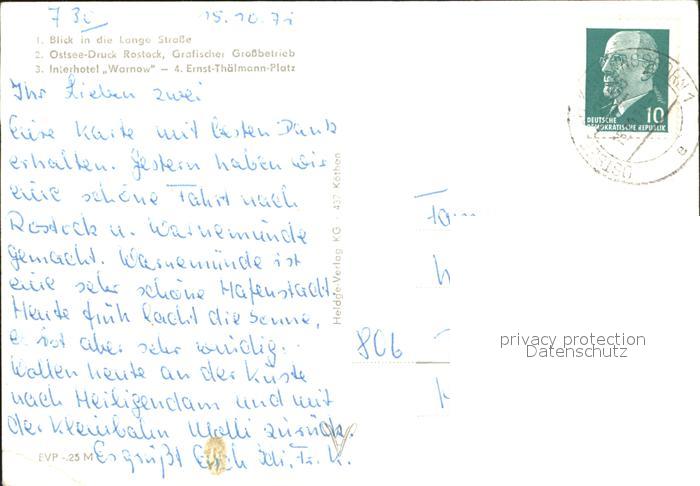 15.10.71
1. Blick in die Lange Straße
2. Ostsee-Druck Rostock, Grafischer Großbetrieb
3. Interhotel „Warnow" — 4. Ernst-Thälmann-Platz
Ihr Lieben zwei
Eure Karte mit besten Dank
erhalten. Gestern haben wir
eine schöne Fahrt nach
Rostock u. Warnemünde
gemacht. Warnemünde ist
eine sehr schöne Hafenstadt.
Heute früh lacht die Sonne,
es ist aber sehr windig.
Wollen heute an der Küste
nach Heiligendam und mit
der Kleinbahn Molli zurück.
Es grüßt Euch
EVP -.25 M
Heldge-Verlag KG · 437 Köthen
DEUTSCHE
DEMOKRATISCHE REPUBLIK
10
806
privacy protection
Datenschutz